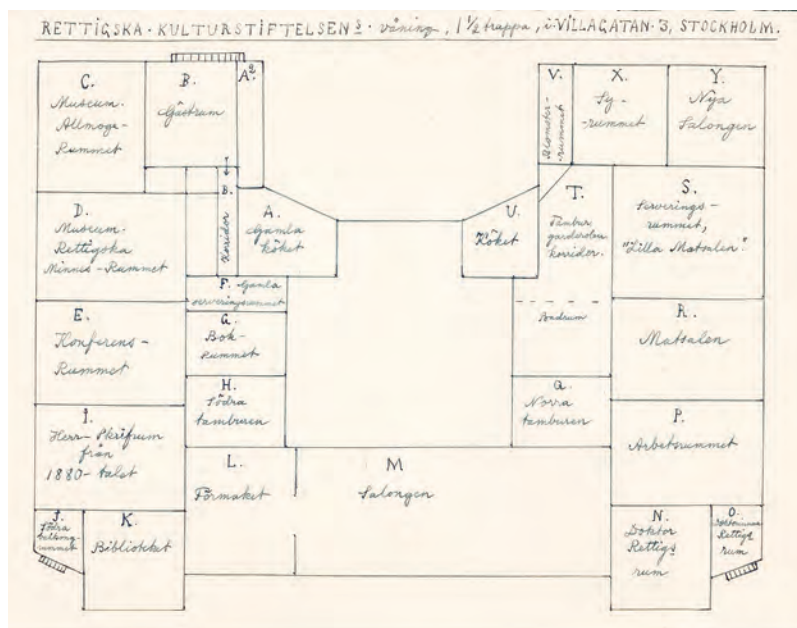 RETTIGSKA · KULTURSTIFTELSENS · våning, 1 1/2 trappa, i · VILLAGATAN · 3, STOCKHOLM.
C.
Museum.
Allmoge-
Rummet
B.
Gästrum
A².
V.
Blomster-
rummet
X.
Sy-
-rummet
Y.
Nya
Salongen
D.
Museum.
Rettigska
Minnes-Rummet
B.
Korridor
A.
Gamla
köket
U.
Köket
T.
Tambur
garderober
korridor.
Badrum
S.
Serverings-
rummet,
"Lilla Matsalen".
F. Gamla
serveringsrummet
E.
Konferens-
Rummet
G.
Bok-
Rummet
R.
Matsalen
H.
Södra
tamburen
Q.
Norra
tamburen
I.
Herr-
från
1880-talet
P.
Arbetsrummet
L.
Förmaket
M
Salongen
J.
Södra
balkong-
rummet
K.
Biblioteket
N.
Doktor
Rettigs
rum
O.
Rettigs
rum